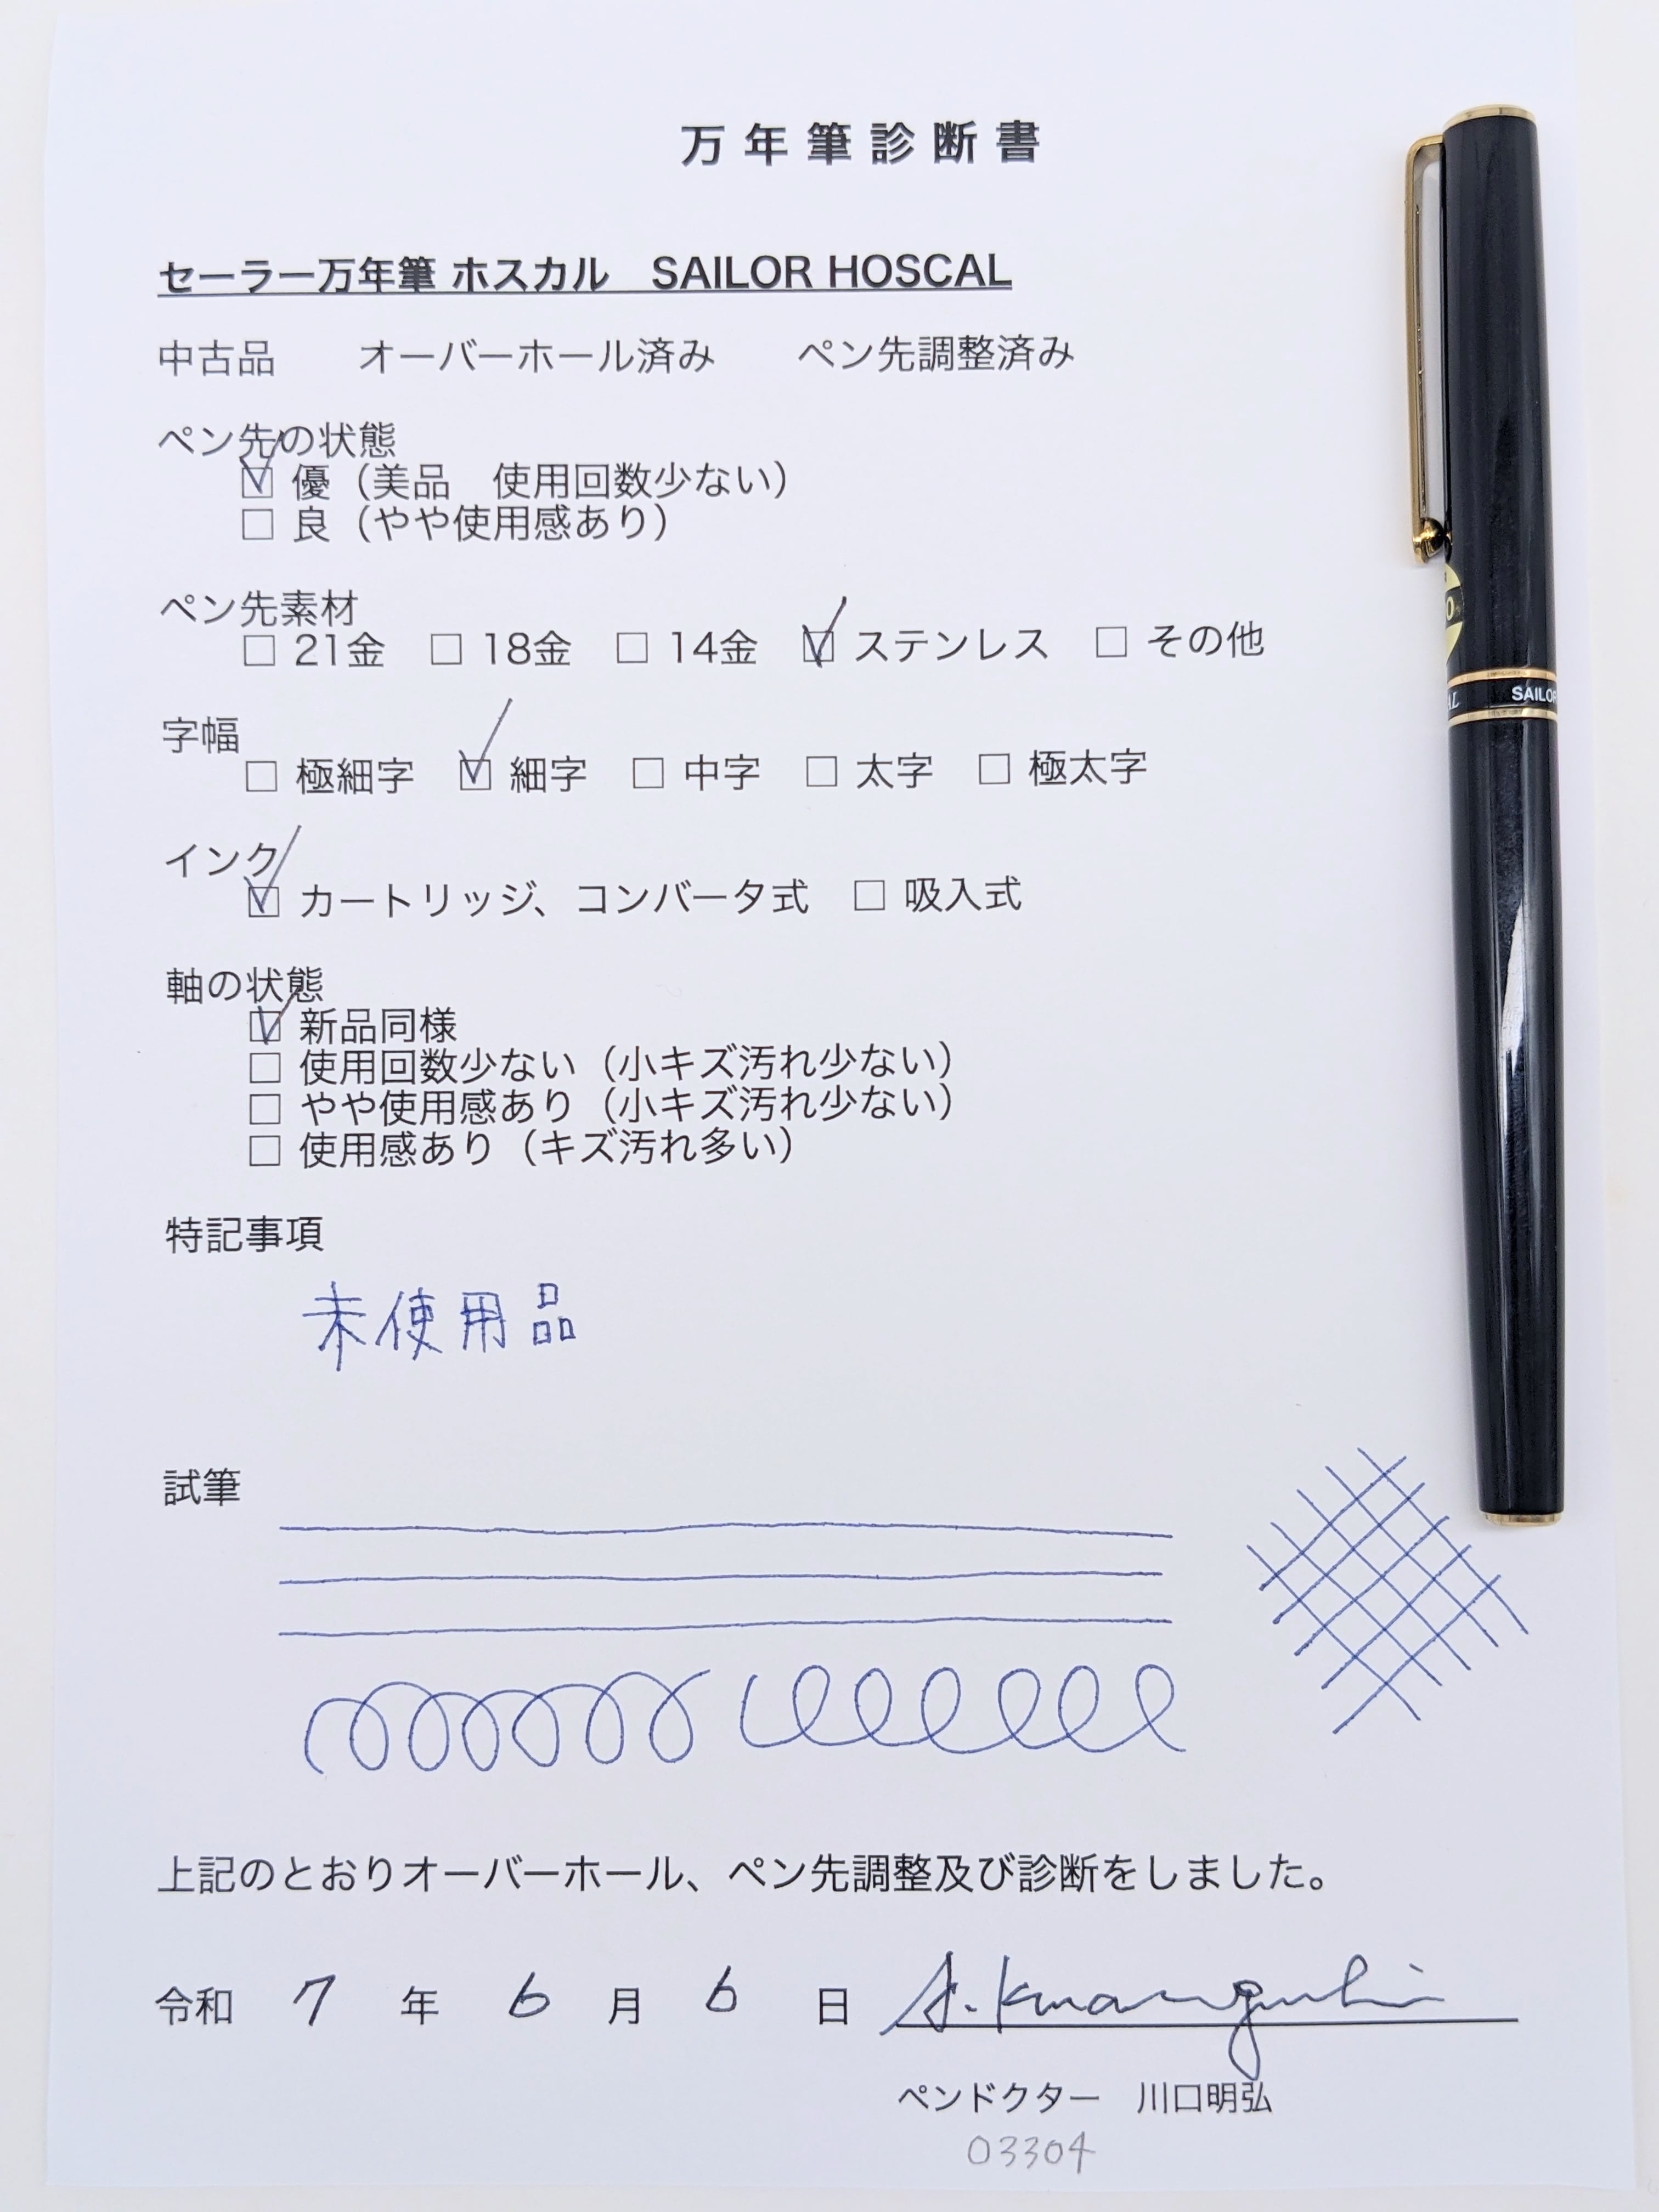 万年筆診断書
セーラー万年筆 ホスカル　SAILOR HOSCAL
中古品　　オーバーホール済み　　ペン先調整済み
ペン先の状態
☑ 優（美品　使用回数少ない）
□ 良（やや使用感あり）
ペン先素材
□ 21金　□ 18金　□ 14金　☑ ステンレス　□ その他
字幅
□ 極細字　☑ 細字　□ 中字　□ 太字　□ 極太字
インク
☑ カートリッジ、コンバータ式　□ 吸入式
軸の状態
☑ 新品同様
□ 使用回数少ない（小キズ汚れ少ない）
□ やや使用感あり（小キズ汚れ少ない）
□ 使用感あり（キズ汚れ多い）
特記事項
未使用品
試筆
上記のとおりオーバーホール、ペン先調整及び診断をしました。
令和 7 年 6 月 6 日 A. Kawaguchi
ペンドクター　川口明弘
03304
SAILOR